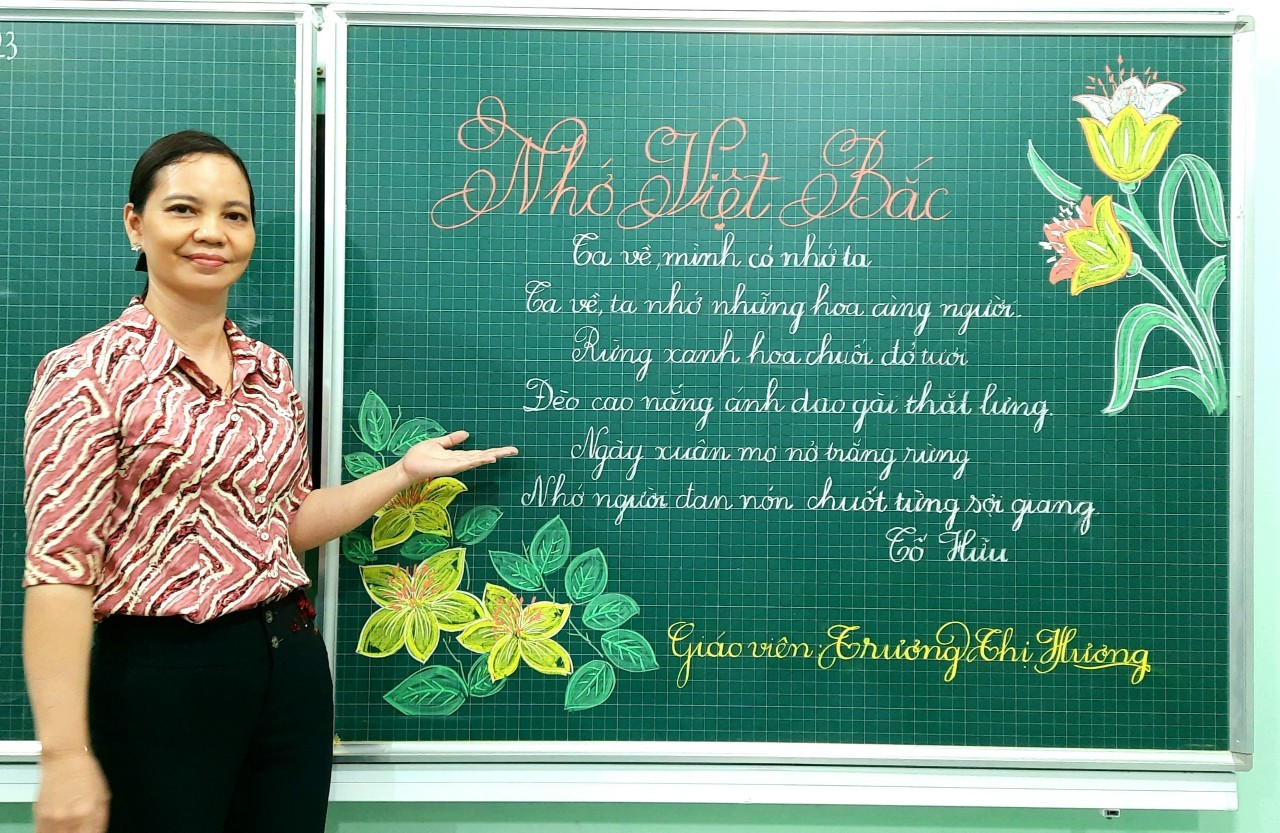 23
Nhớ Việt Bắc
Ta về, mình có nhớ ta
Ta về, ta nhớ những hoa cùng người.
Rừng xanh hoa chuối đỏ tươi
Đèo cao nắng ánh dao gài thắt lưng.
Ngày xuân mơ nở trắng rừng
Nhớ người đan nón chuốt từng sợi giang.
Tố Hữu
Giáo viên: Trương Thị Hương